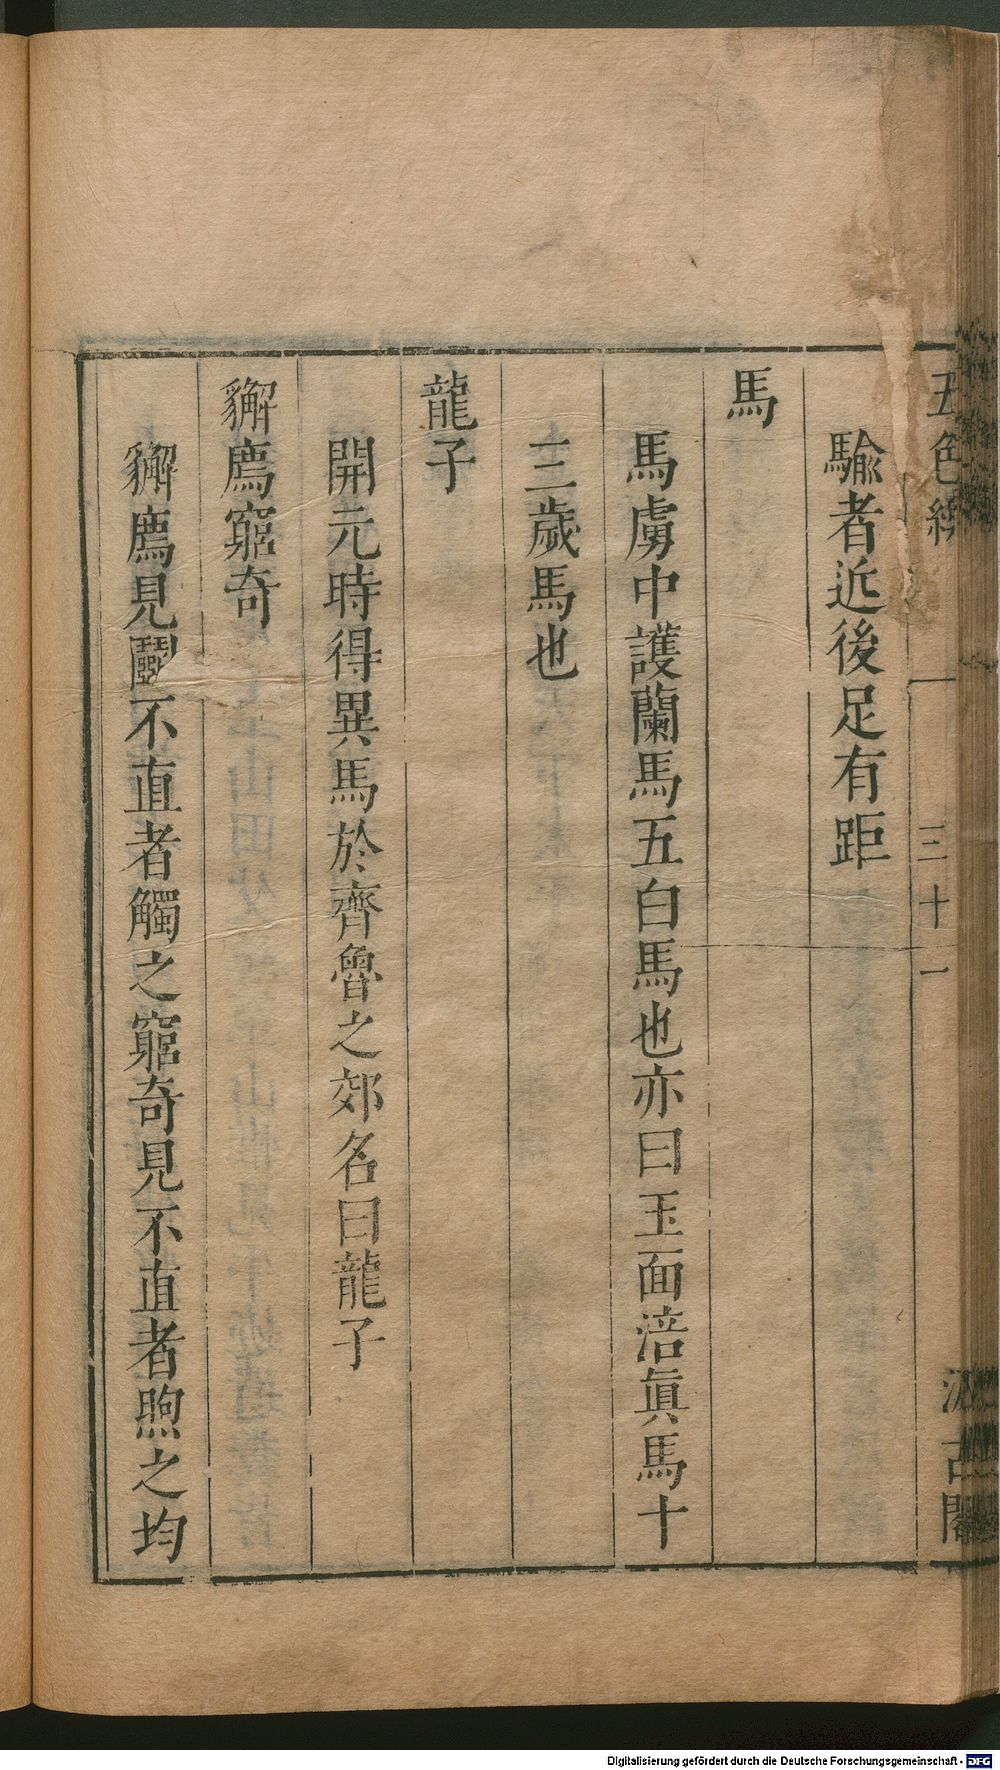 五色線
三十一
汲古閣
騟者近後足有距
馬
馬虜中護蘭馬五白馬也亦曰玉面涪眞馬十
三歲馬也
龍子
開元時得異馬於齊魯之郊名曰龍子
獬廌窮奇
獬廌見鬭不直者觸之窮奇見不直者煦之均
Digitalisierung gefördert durch die Deutsche Forschungsgemeinschaft - DFG